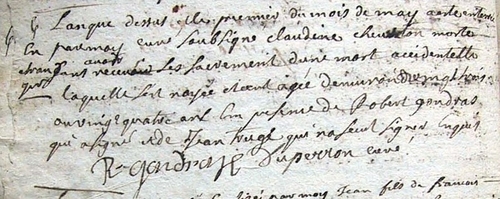 Lan que dessus et le premier du mois de may a este enterré
En par moy curé soubsigné claudene morte
sans avoir recevoir Les sacrement dune mort accidentelle
laquelle sest noyée etant agée denviron vingt trois
ou vingt quatre ans En presence de Robert gondras
qui a signé et de Jean qui na sceut signer Enquis
R gondras Duperron curé
par moy Jean fils de francois